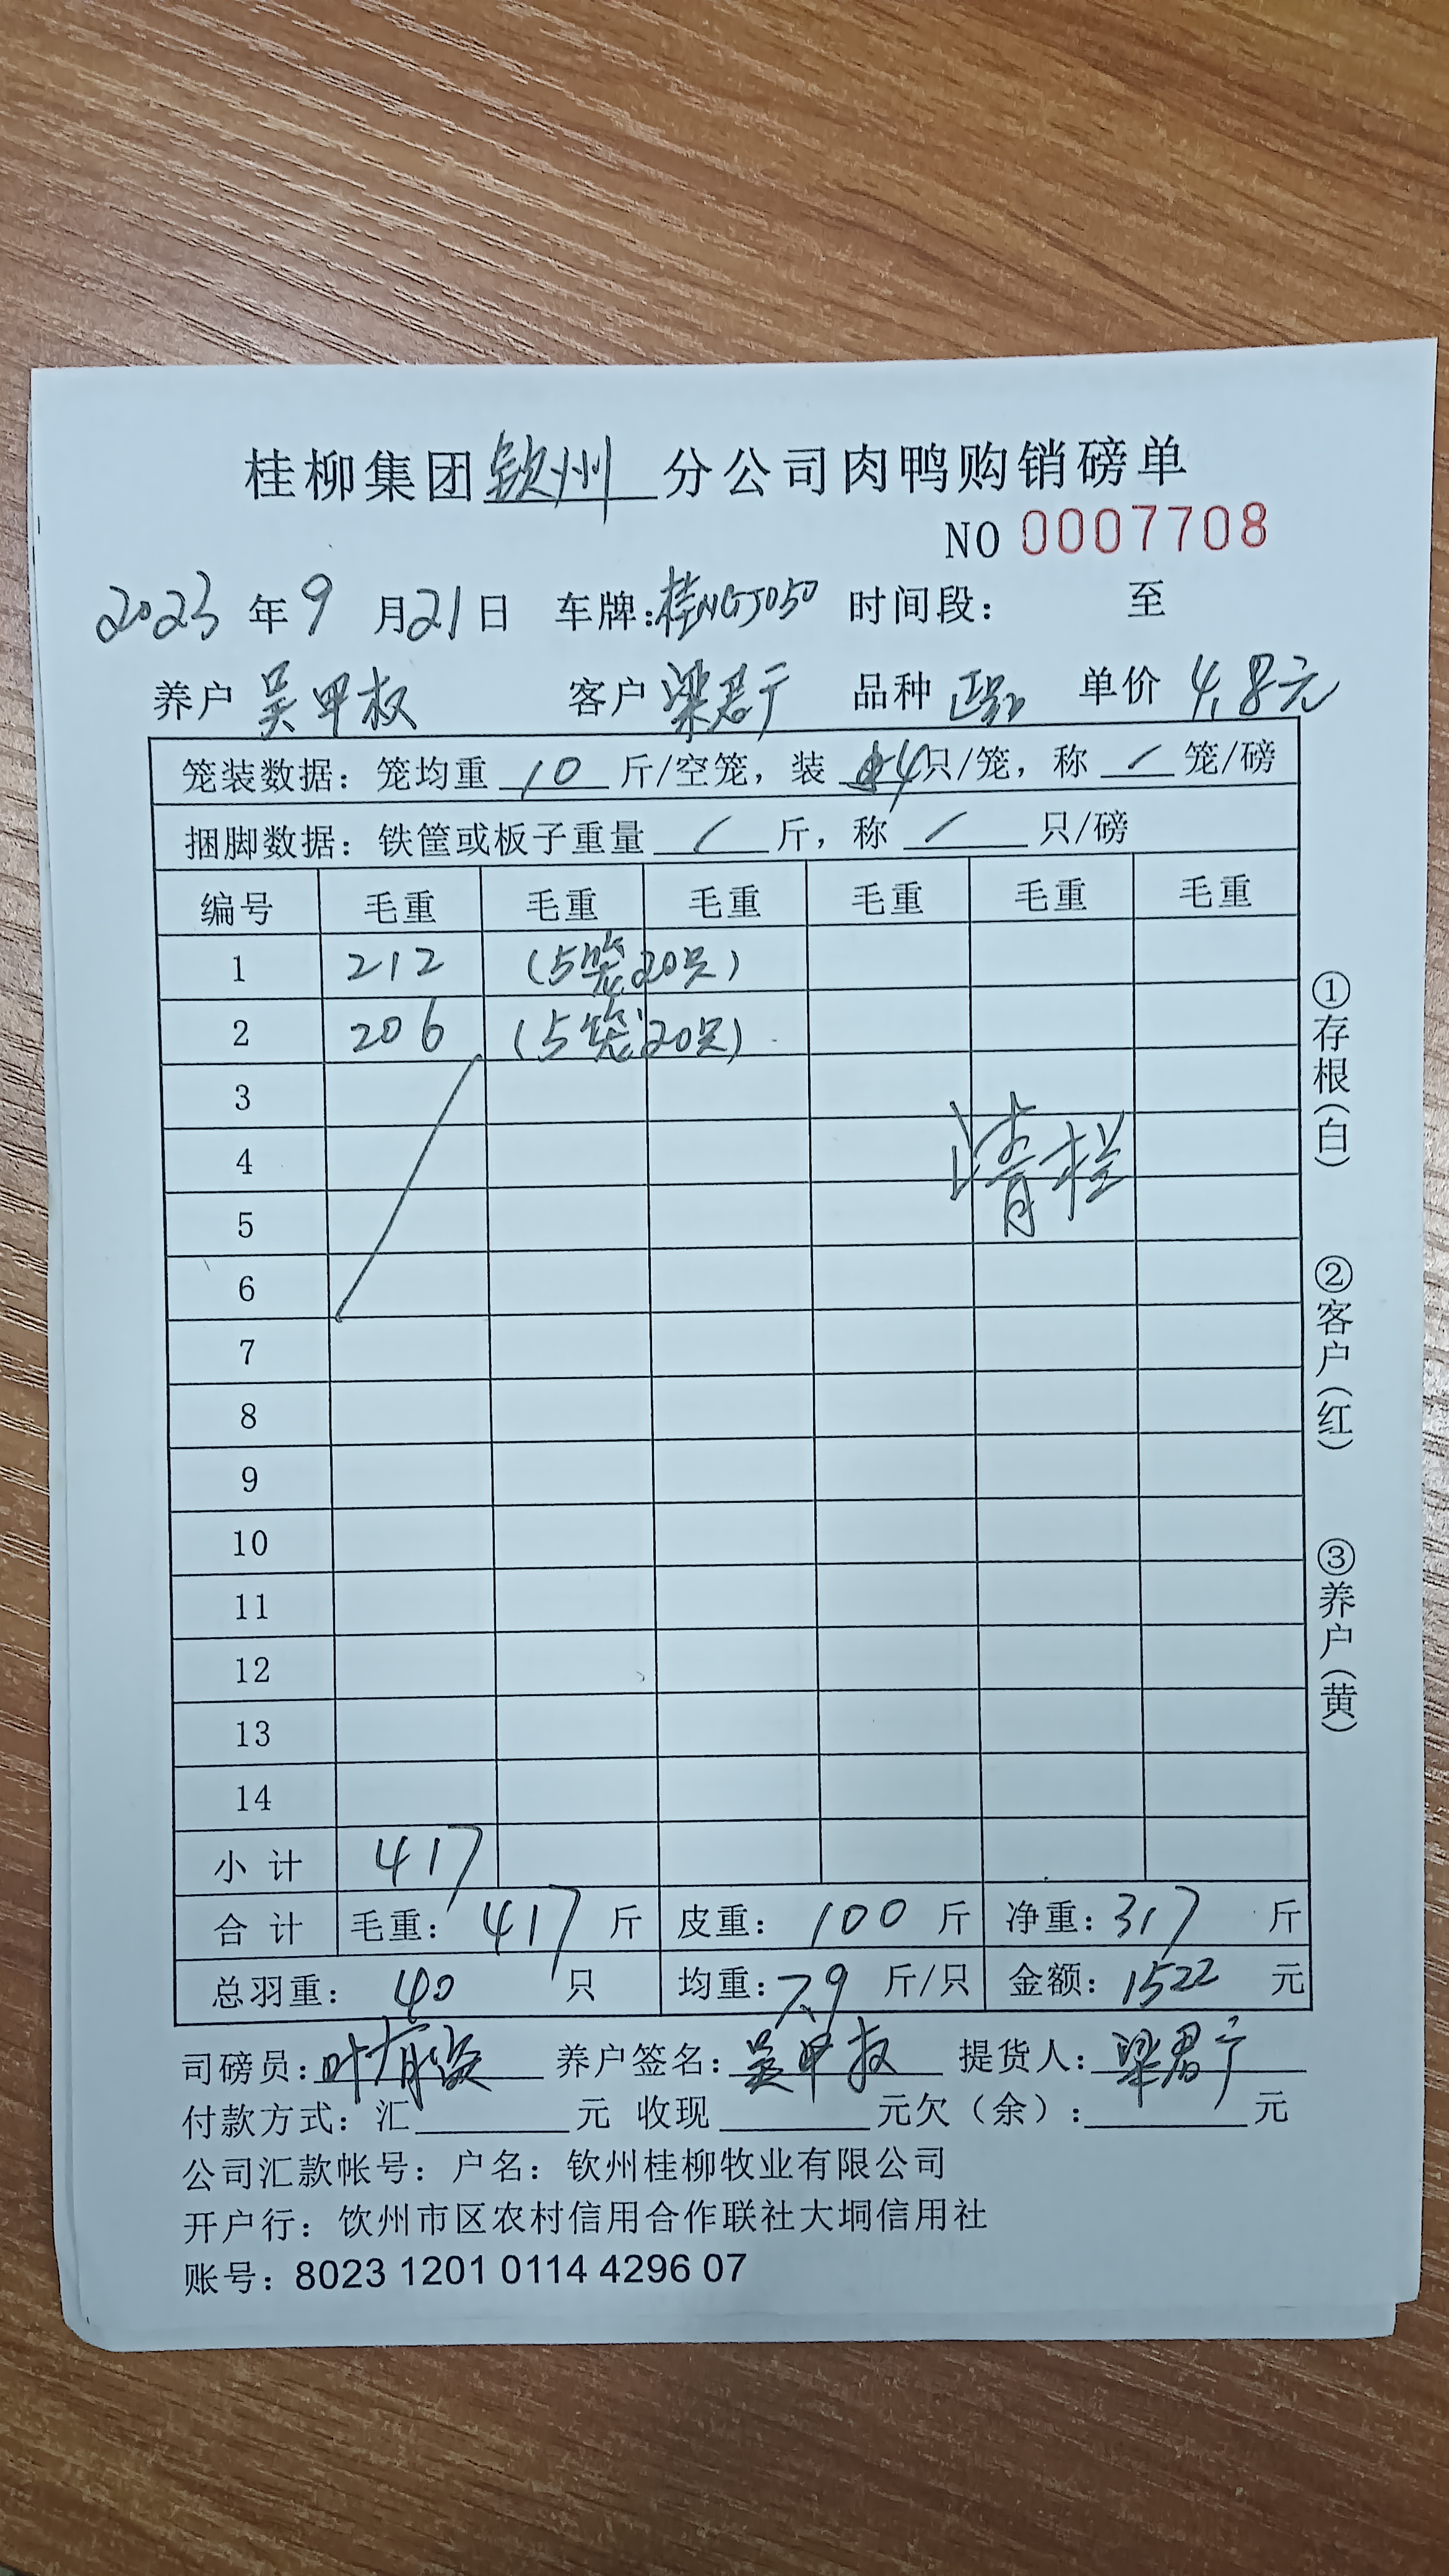 桂柳集团钦州分公司肉鸭购销磅单
NO 0007708
2023年9月21日 车牌:桂NGJ050 时间段: 至
养户 吴甲权 客户 梁君广 品种 单价 4.8元
笼装数据: 笼均重 10 斤/空笼, 装 4只/笼, 称 / 笼/磅
捆脚数据: 铁筐或板子重量 / 斤, 称 / 只/磅
编号 毛重 毛重 毛重 毛重 毛重 毛重
1 212 (5笼20只)
2 206 (5笼20只)
3
4 清栏
5
6
7
8
9
10
11
12
13
14
小计 417
合计 毛重: 417 斤 皮重: 100 斤 净重: 317 斤
总羽重: 40 只 均重: 7.9 斤/只 金额: 1522 元
司磅员: 叶 养户签名: 吴甲权 提货人: 梁君广
付款方式: 汇 元 收现 元欠(余): 元
公司汇款帐号: 户名: 钦州桂柳牧业有限公司
开户行: 钦州市区农村信用合作联社大垌信用社
账号: 8023 1201 0114 4296 07
①存根(白)
②客户(红)
③养户(黄)